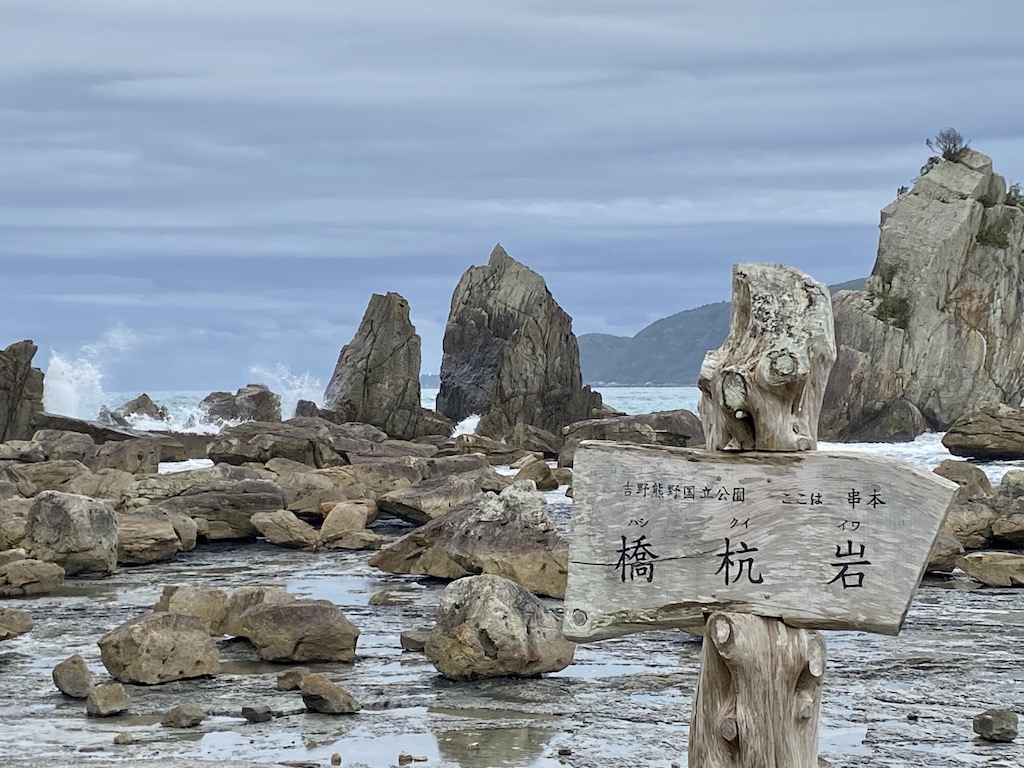 吉野熊野国立公園 ここは 串本
ハシ クイ イワ
橋 杭 岩